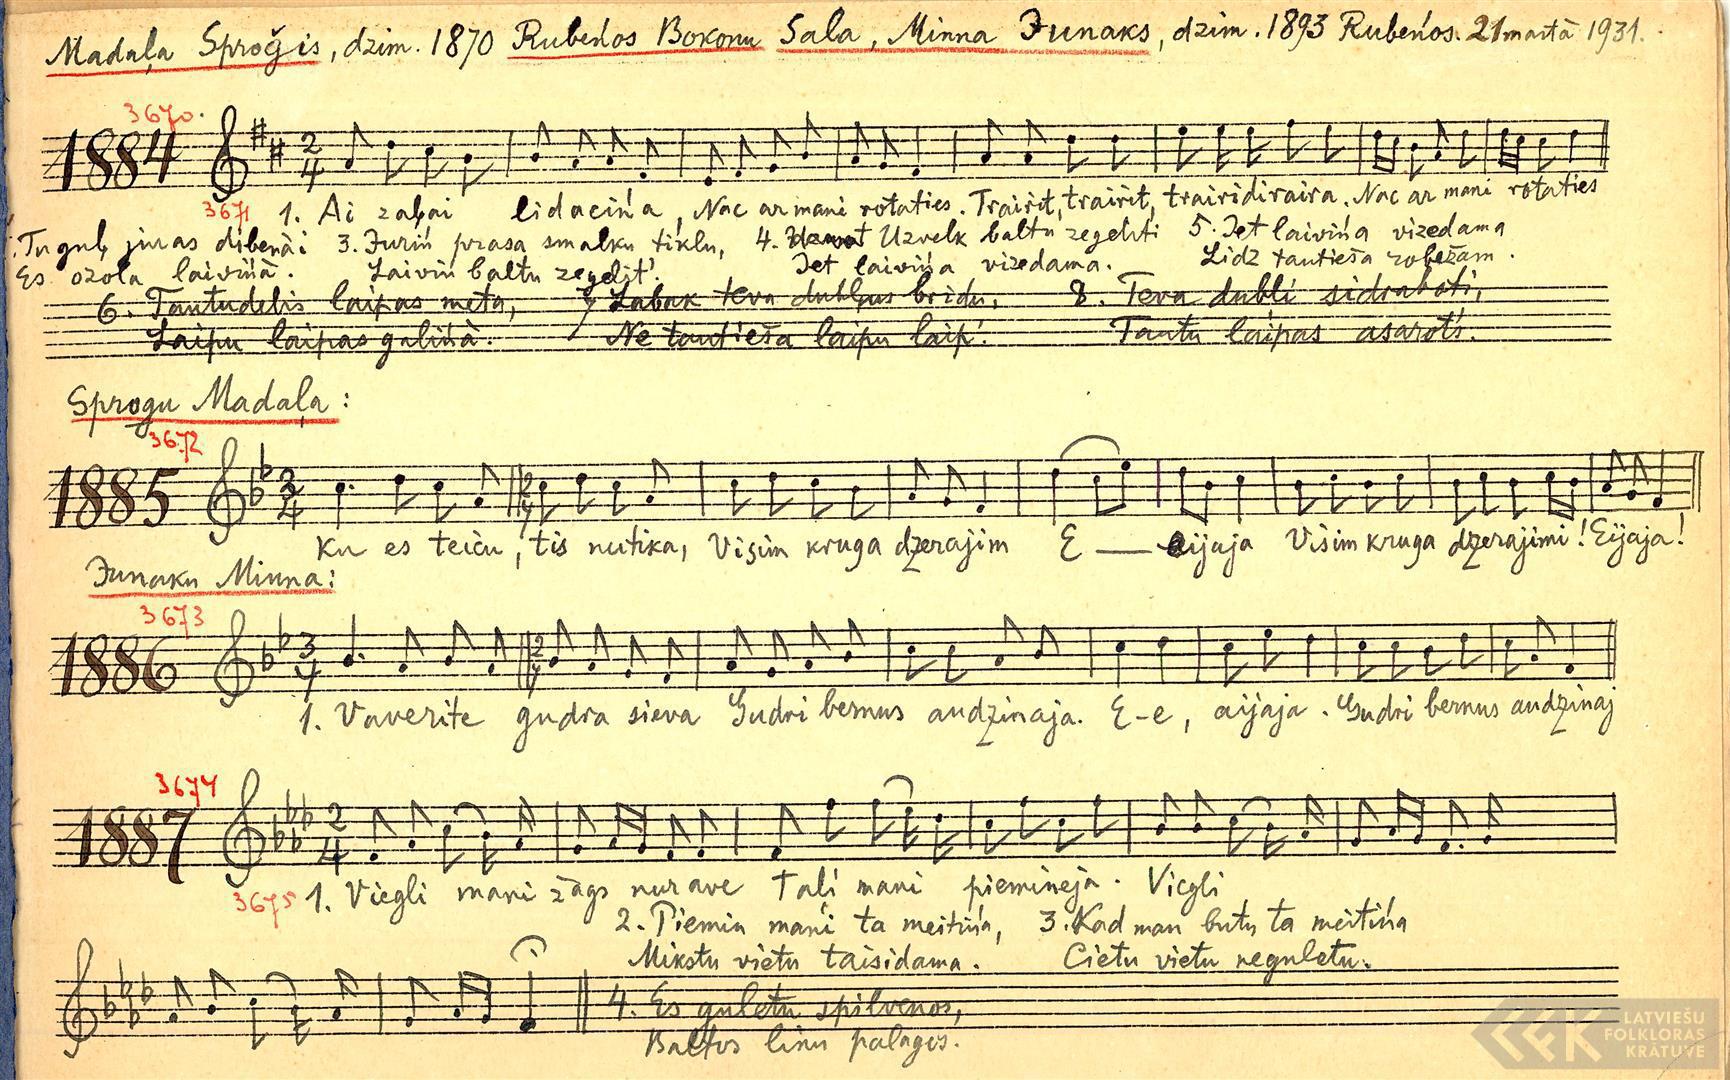 Madaļa Sproģis, dzim. 1870 Rubeņos Bokonu Sala, Minna Junaks, dzim. 1893 Rubeņos. 21 martā 1931.
3670.
1884 2/4
3671 1. Ai zaļai lidaciņa, Nac ar mani rotaties. Trairit, trairit, trairidiraira. Nac ar mani rotaties
Tu guļ juras dibenài 3. Juriņ prasa smalku tiklu, 4. Uzvelk baltu zegeliti 5. Jet laiviņa vizedama
Es ozola laiviņà. Laiviņ baltu zegelit'. Jet laiviņa vizedama. Lidz tautieša robežam.
6. Tautudelis laipas meta, 7 Labak teva dubļus bridu, 8. Teva dubli sidraboti,
Laipu laipas galiņà. Ne tautieša laipu laip'. Tautu laipas asarots.
Sprogu Madaļa:
3672
1885 3/4 2/4
Ku es teicu, tis nutika, Visim kruga dzerajim E — eijaja Visim kruga dzerajimi! Eijaja!
Junaku Minna:
3673
1886 3/4 2/4
1. Vaverite gudra sieva Gudri bernus audzinaja. E-e, aijaja. Gudri bernus audzinaj
3674
1887 2/4
3675 1. Viegli mani zàgs nurave Tali mani piemineja. Viegli
2. Piemin mani ta meitiņa, 3. Kad man butu ta meitiņa
Mikstu vietu taisidama. Cietu vietu neguletu.
4. Es guletu spilvenos,
Baltos linu palagos.
LATVIEŠU
FOLKLORAS
KRĀTUVE